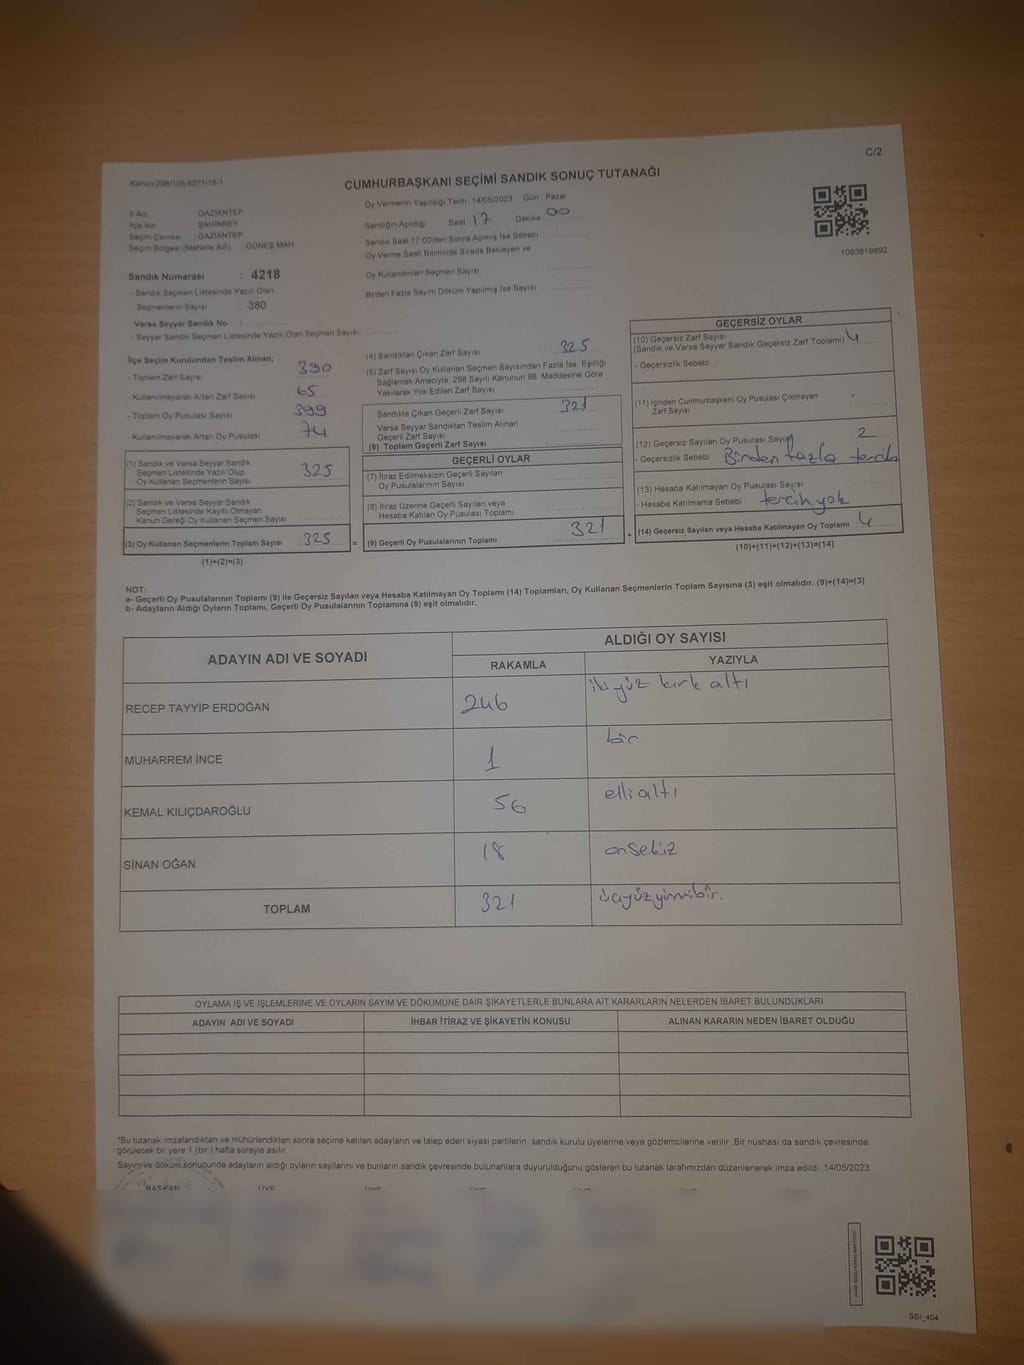 C/2
Kanun:298/105,6271/19-1
CUMHURBAŞKANI SEÇİMİ SANDIK SONUÇ TUTANAĞI
İl Adı : GAZİANTEP
İlçe Adı : ŞAHİNBEY
Seçim Çevresi : GAZİANTEP
Seçim Bölgesi (Mahalle Adı) GÜNEŞ MAH
Oy Vermenin Yapıldığı Tarih 14/05/2023 Gün Pazar
Sandığın Açıldığı Saat 17 Dakika 00
Sandık Saat 17:00'den Sonra Açılmış İse Sebebi
Oy Verme Saati Bitiminde Sırada Bekleyen ve
Oy Kullandırılan Seçmen Sayısı
Birden Fazla Sayım Döküm Yapılmış İse Sayısı
1093819892
Sandık Numarası : 4218
- Sandık Seçmen Listesinde Yazılı Olan
Seçmenlerin Sayısı : 380
Varsa Seyyar Sandık No :
- Seyyar Sandık Seçmen Listesinde Yazılı Olan Seçmen Sayısı
İlçe Seçim Kurulundan Teslim Alınan;
- Toplam Zarf Sayısı 390
- Kullanılmayarak Artan Zarf Sayısı 65
- Toplam Oy Pusulası Sayısı 399
- Kullanılmayarak Artan Oy Pusulası 74
(1) Sandık ve Varsa Seyyar Sandık
Seçmen Listesinde Yazılı Olup
Oy Kullanan Seçmenlerin Sayısı 325
(2) Sandık ve Varsa Seyyar Sandık
Seçmen Listesinde Kayıtlı Olmayan
Kanun Gereği Oy Kullanan Seçmen Sayısı
(3) Oy Kullanan Seçmenlerin Toplam Sayısı 325 =
(1)+(2)=(3)
(4) Sandıktan Çıkan Zarf Sayısı 325
(5) Zarf Sayısı Oy Kullanan Seçmen Sayısından Fazla İse, Eşitliği
Sağlamak Amacıyla, 298 Sayılı Kanunun 98. Maddesine Göre
Yakılarak Yok Edilen Zarf Sayısı
Sandıkta Çıkan Geçerli Zarf Sayısı 321
Varsa Seyyar Sandıktan Teslim Alınan
Geçerli Zarf Sayısı
(6) Toplam Geçerli Zarf Sayısı
GEÇERLİ OYLAR
(7) İtiraz Edilmeksizin Geçerli Sayılan
Oy Pusulalarının Sayısı
(8) İtiraz Üzerine Geçerli Sayılan veya
Hesaba Katılan Oy Pusulası Toplamı
(9) Geçerli Oy Pusulalarının Toplamı 321 +
GEÇERSİZ OYLAR
(10) Geçersiz Zarf Sayısı
(Sandık ve Varsa Seyyar Sandık Geçersiz Zarf Toplamı) 4
- Geçersizlik Sebebi
(11) İçinden Cumhurbaşkanı Oy Pusulası Çıkmayan
Zarf Sayısı
(12) Geçersiz Sayılan Oy Pusulası Sayısı 2
- Geçersizlik Sebebi Birden fazla tercih
(13) Hesaba Katılmayan Oy Pusulası Sayısı
- Hesaba Katılmama Sebebi : tercih yok
(14) Geçersiz Sayılan veya Hesaba Katılmayan Oy Toplamı : 4
(10)+(11)+(12)+(13)=(14)
NOT:
a- Geçerli Oy Pusulalarının Toplamı (9) ile Geçersiz Sayılan veya Hesaba Katılmayan Oy Toplamı (14) Toplamları, Oy Kullanan Seçmenlerin Toplam Sayısına (3) eşit olmalıdır. (9)+(14)=(3)
b- Adayların Aldığı Oyların Toplamı, Geçerli Oy Pusulalarının Toplamına (9) eşit olmalıdır.
ADAYIN ADI VE SOYADI ALDIĞI OY SAYISI
RAKAMLA YAZIYLA
RECEP TAYYİP ERDOĞAN 246 iki yüz kırk altı
MUHARREM İNCE 1 bir
KEMAL KILIÇDAROĞLU 56 elli altı
SİNAN OĞAN 18 onsekiz
TOPLAM 321 üçyüzyirmibir.
OYLAMA İŞ VE İŞLEMLERİNE VE OYLARIN SAYIM VE DÖKÜMÜNE DAİR ŞİKAYETLERLE BUNLARA AİT KARARLARIN NELERDEN İBARET BULUNDUKLARI
ADAYIN ADI VE SOYADI İHBAR İTİRAZ VE ŞİKAYETİN KONUSU ALINAN KARARIN NEDEN İBARET OLDUĞU
*Bu tutanak imzalandıktan ve mühürlendikten sonra seçime katılan adayların ve talep eden siyasi partilerin sandık kurulu üyelerine veya gözlemcilerine verilir. Bir nüshası da sandık çevresinde
görülecek bir yere 1 (bir) hafta süreyle asılır.
Sayım ve döküm sonucunda adayların aldığı oyların sayılarını ve bunların sandık çevresinde bulunanlara duyurulduğunu gösteren bu tutanak tarafımızdan düzenlenerek imza edildi. 14/05/2023
BAŞKAN ÜYE ÜYE ÜYE ÜYE
SSI_404